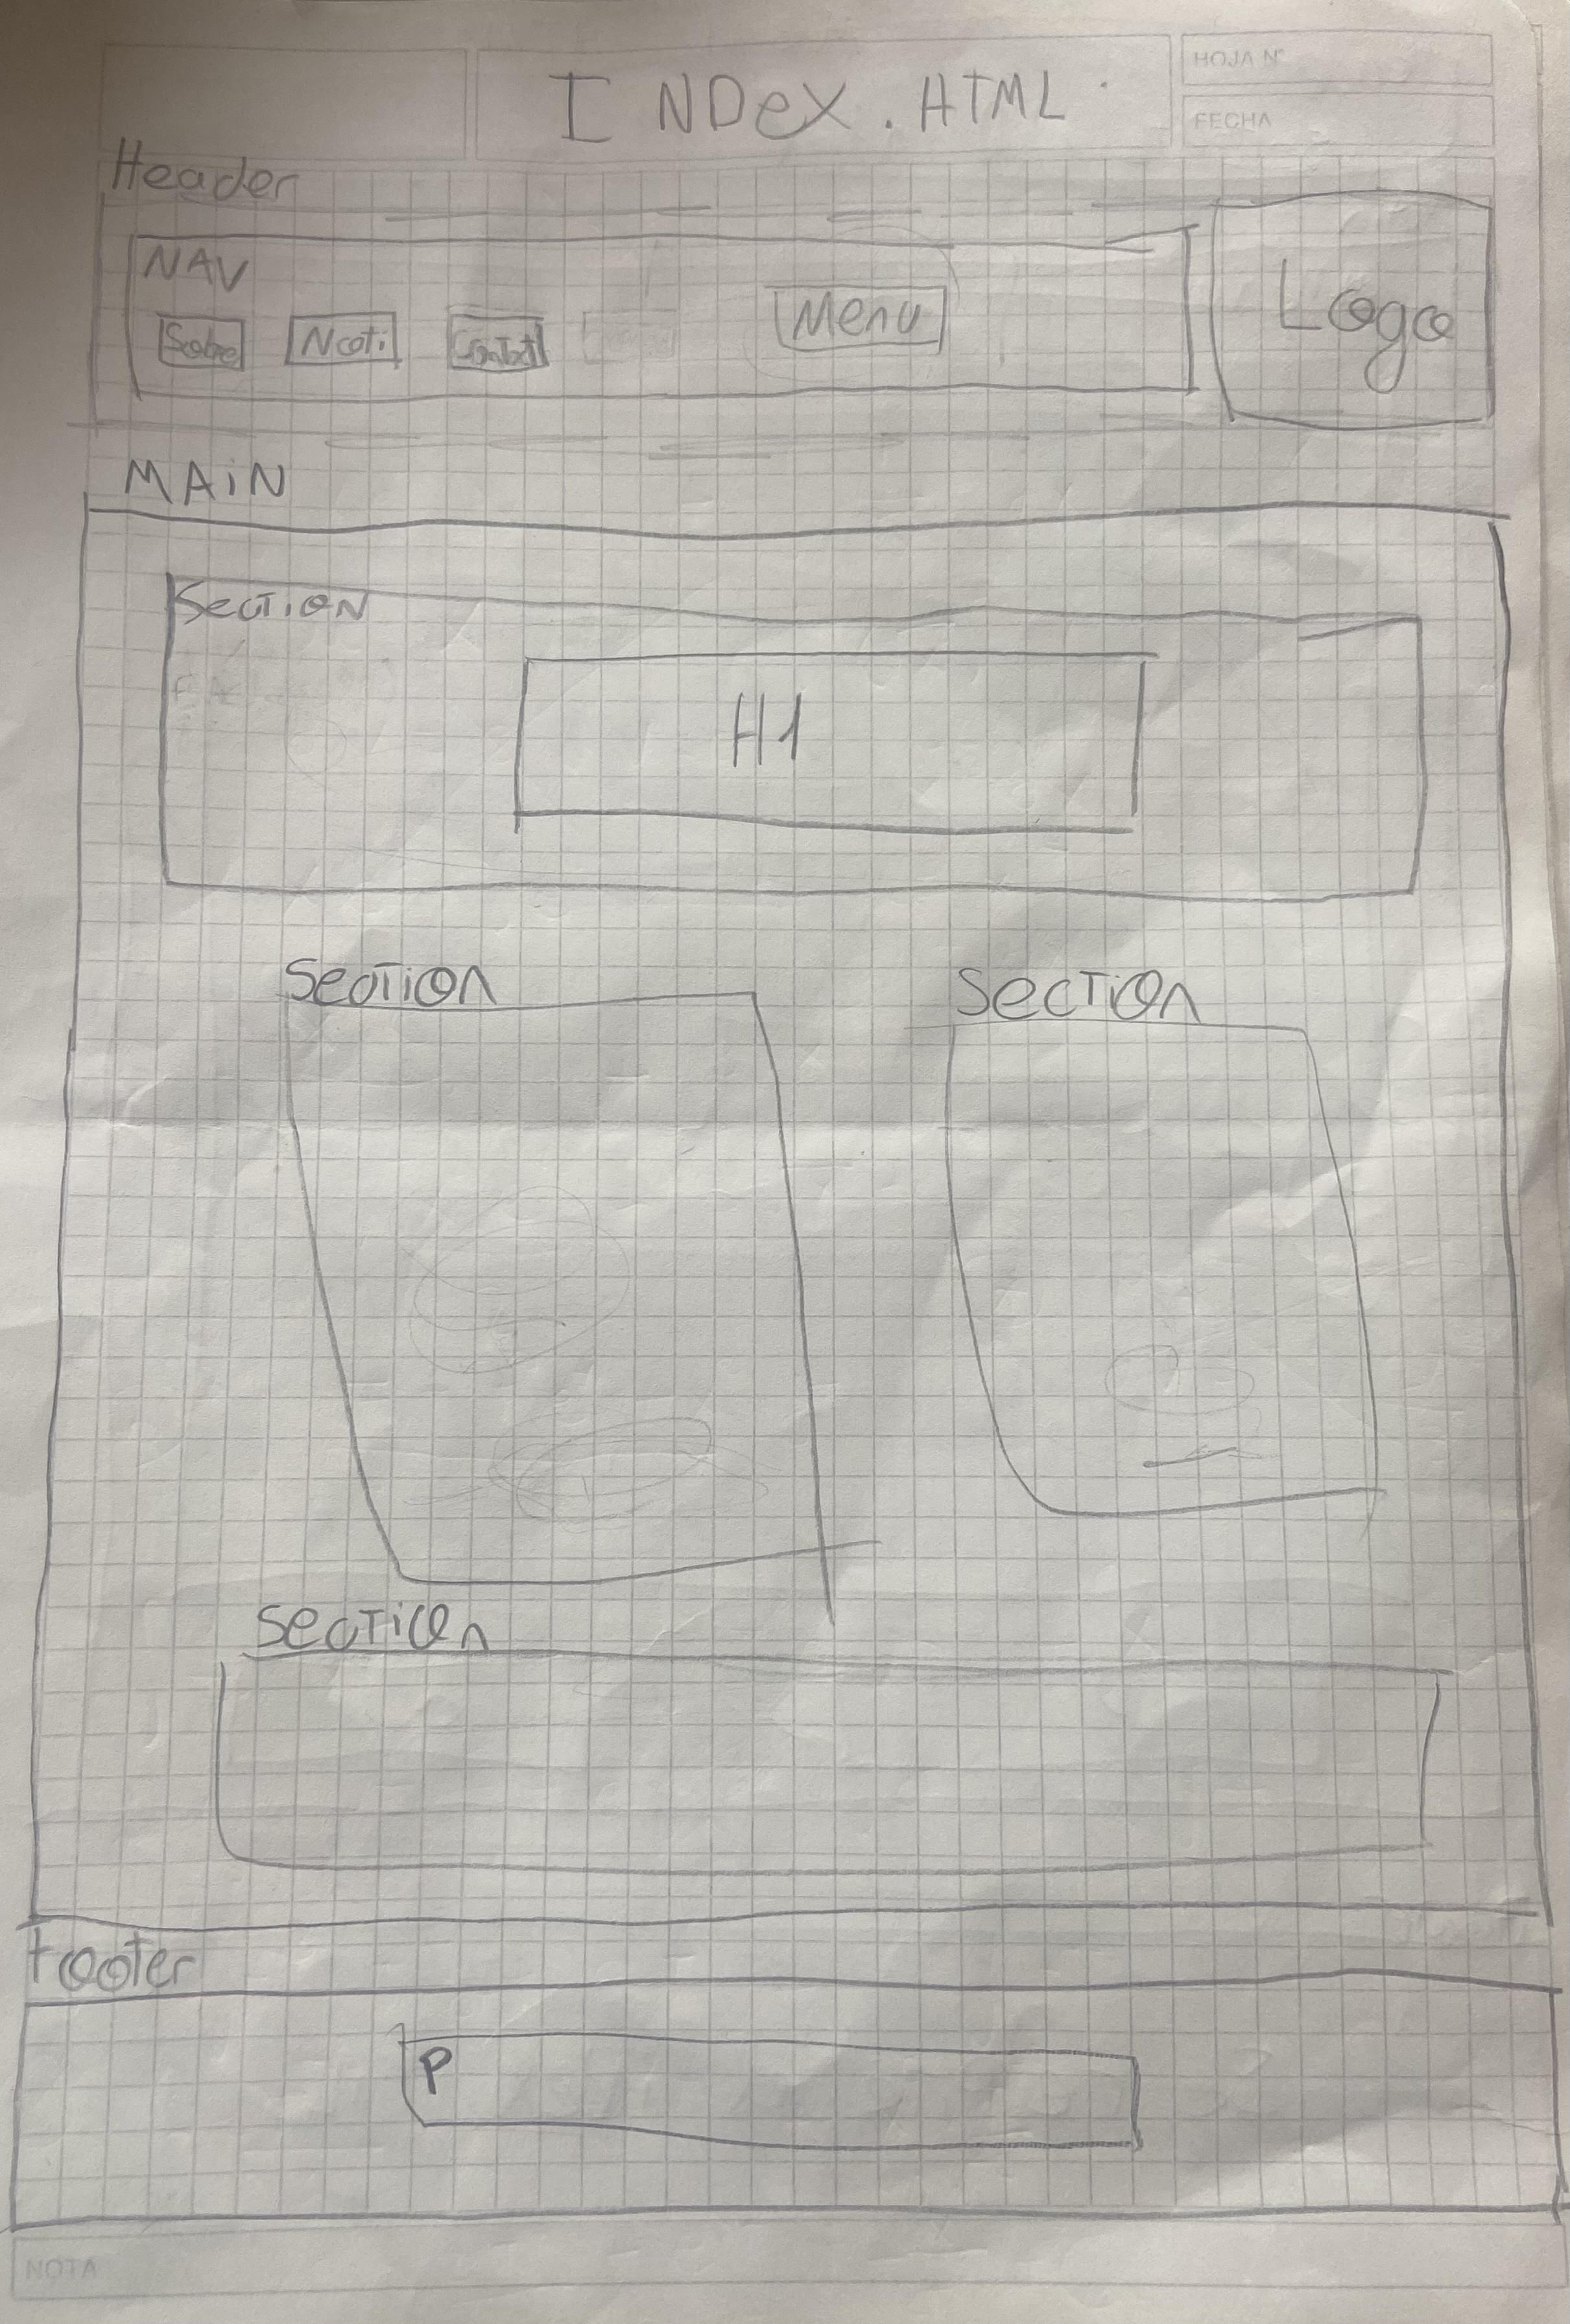 INDeX.HTML
HOJA N°
FECHA
Header
NAV
Sobre
Noti
Contact
Menu
Logo
MAiN
SecTiON
H1
SecTiON
SecTiON
SecTiON
Footer
P
NOTA